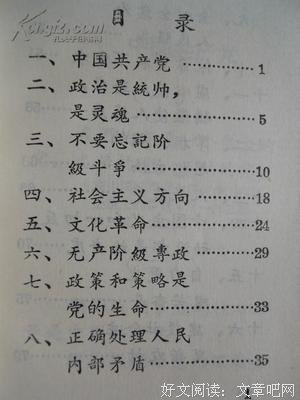 目录
一、中国共产党…………1
二、政治是統帅，
是灵魂…………5
三、不要忘記阶
級斗爭…………10
四、社会主义方向…………18
五、文化革命…………24
六、无产阶級專政…………29
七、政策和策略是
党的生命…………33
八、正确处理人民
内部矛盾…………35
好文阅读：文章吧网